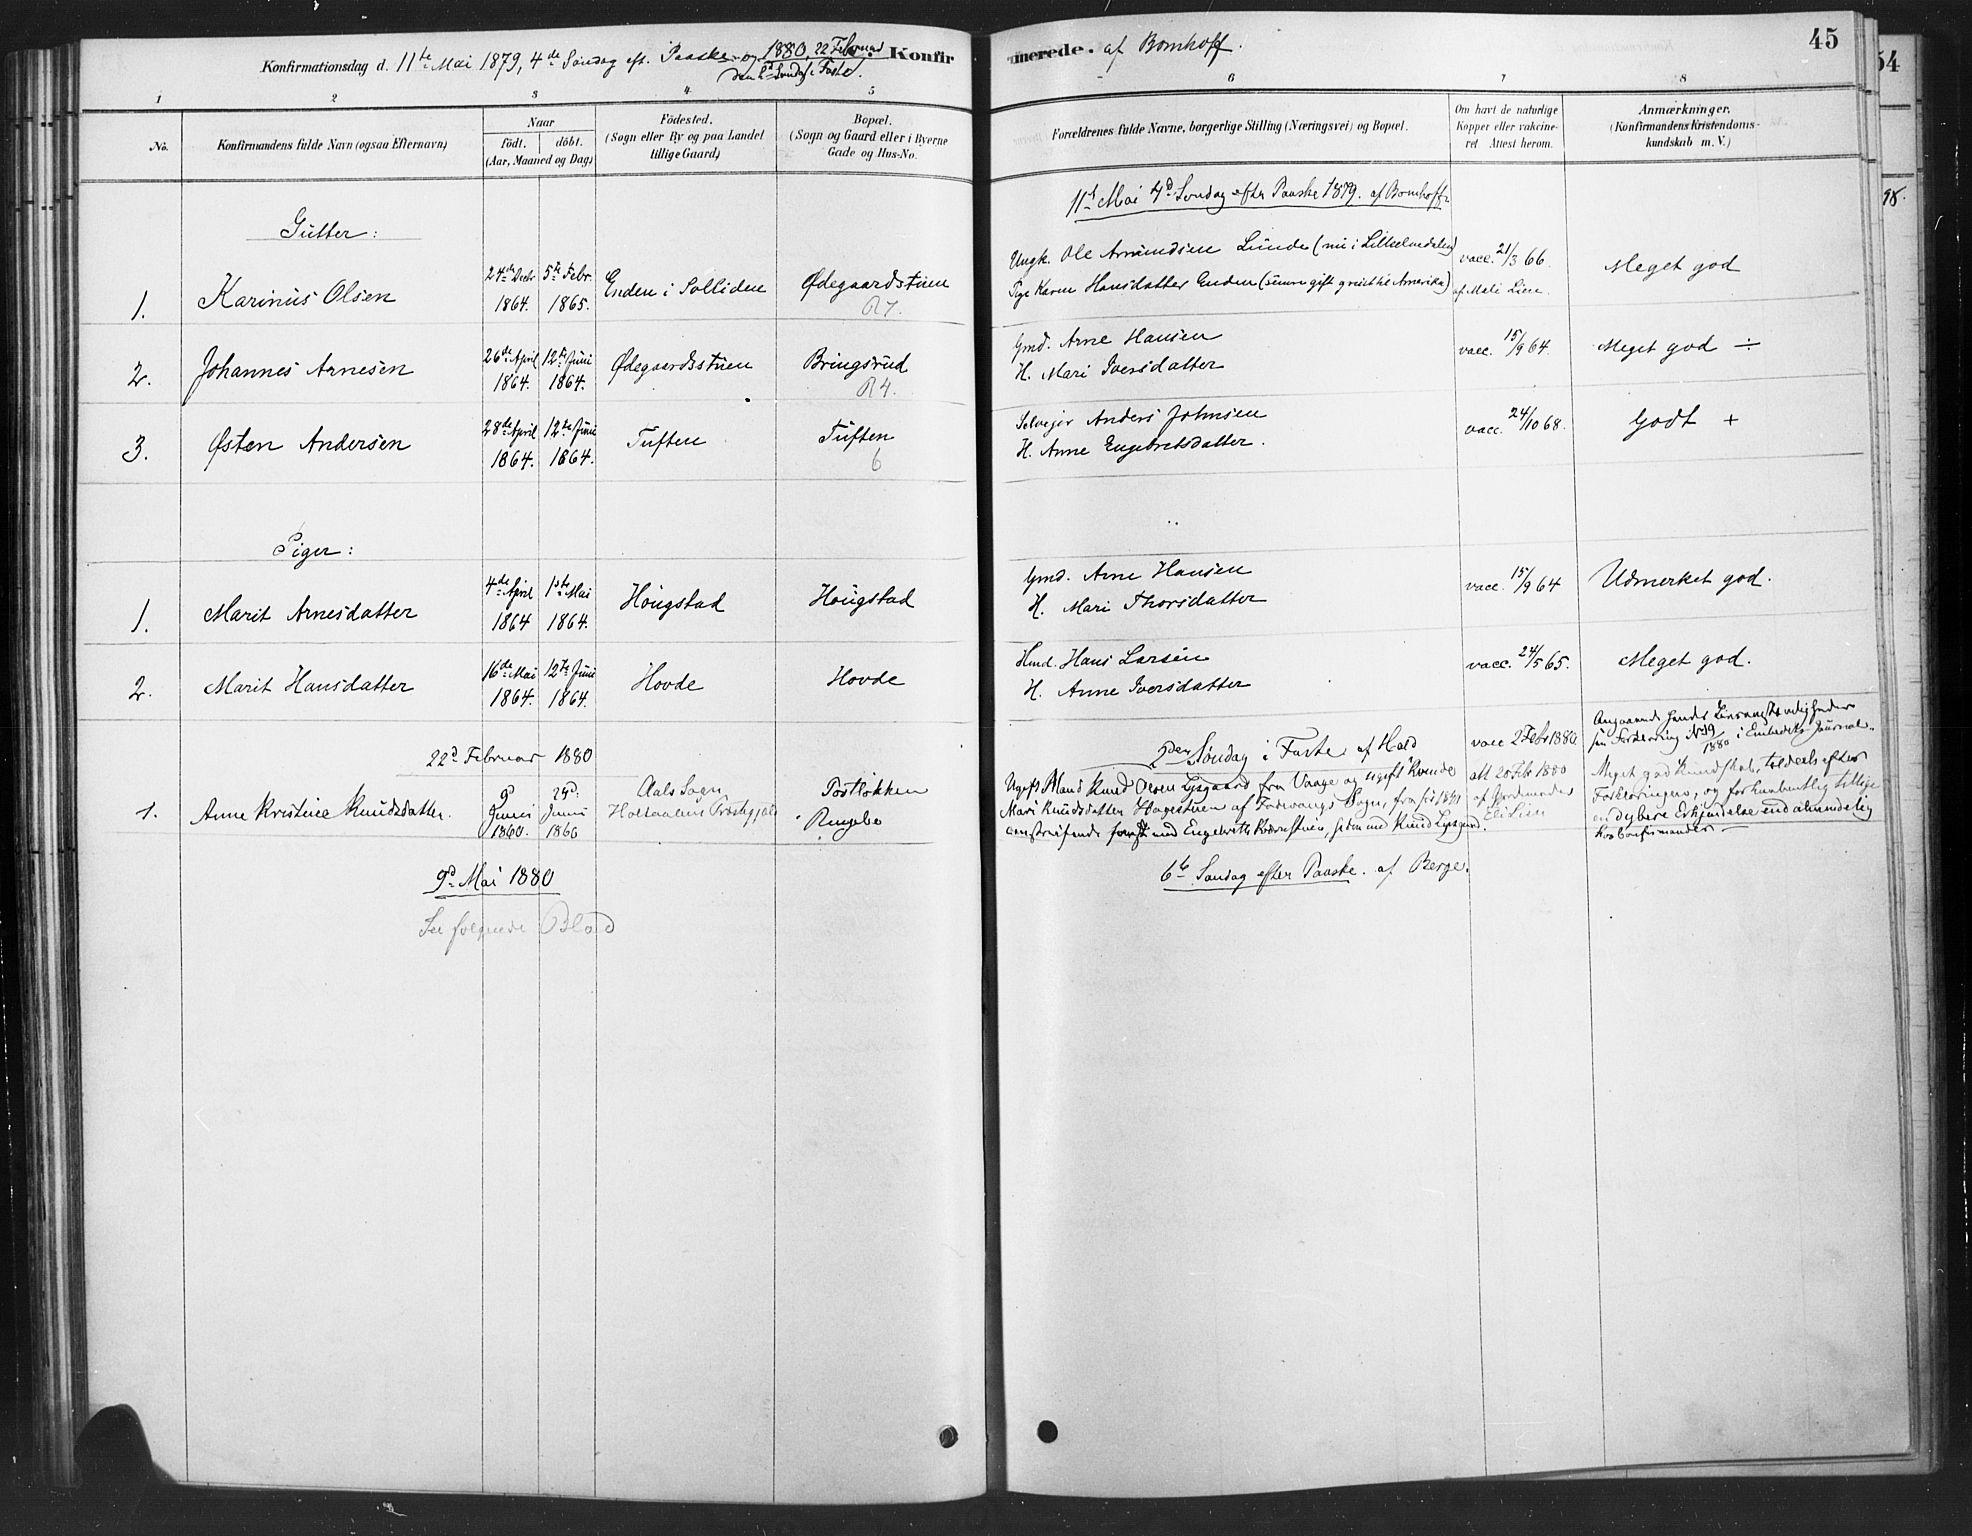 Konfirmationsdag d. 11te Mai 1879, 4de Søndag eft. Paaske og 1880, 22 Februar Konfirmerede. af Bomhoff.
den 2d Søndag i Faste.
45
54
98.
1 2 3 4 5 6 7 8
No.
Konfirmandens fulde Navn (ogsaa Efternavn)
Naar
födt. döbt.
(Aar, Maaned og Dag)
Födested.
(Sogn eller By og paa Landet
tillige Gaard)
Bopæl.
(Sogn og Gaard eller i Byerne
Gade og Hus-No.
Forældrenes fulde Navne, borgerlige Stilling (Næringsvei) og Bopæl.
Om havt de naturlige
Kopper eller vakcine-
ret Attest herom.
Anmærkninger.
(Konfirmandens Kristendoms-
kundskab m. V.)
11te Mai 4d Søndag efter Paaske 1879. af Bomhoff
Gutter:
1. Karinus Olsen 24de Decbr. 1864. 5te Febr. 1865. Enden i Solliden Ødegaardstuen
R 7.
Ungk. Ole Amundsen Lunde (nu i Lilleelvedalen)
Pige Karen Hansdatter Enden (senere gift reist til Amerika)
vacc. 21/3 66.
af Mali Lien.
Meget god
2. Johannes Arnesen 26de April 1864. 12te Juni 1864. Ødegaardsstuen Bringsrud
R 4.
Gmd. Arne Hansen
H. Mari Iversdatter
vacc. 15/9 64. Meget god ÷
3. Østen Andersen 28de April 1864. 12te Juni 1864. Tuften Tuften
6
Selvejer Anders Johnsen
H. Anne Engebretsdatter.
vacc. 24/10 68. Godt +
Piger:
1. Marit Arnesdatter 4de April 1864 1ste Mai 1864. Hougstad Hougstad
Gmd. Arne Hansen
H. Mari Thorsdatter
vacc. 15/9 64 Udmerket god.
2. Marit Hansdatter 16de Mai 1864. 12te Juni 1864. Hovde Hovde
Hmd. Hans Larsen
H. Anne Iversdatter
vacc. 24/5 65. Meget god.
22d Februar 1880
2den Søndag i Faste af Hald
1. Anne Kristine Knudsdatter. 9d Junii 1860. 29d: Junii 1860 Aals Sogn
Holtaalens Præstegjeld
Postløkken
Ringebu
Ugift Mand Knud Olsen Lysgaard fra Vaage og ugift Kvinde
Mari Knudsdatter Hagestuen af Fodvangs Sogn,
omstreifende først med Engebreth siden med Knud Lysgaard.
vacc 2 Feb 1880.
att 20 Feb 1880
af Gjordmoder
Eli Lien
Angaaende hendes
se Forklaring No 19 1880 i Embeds Journal.
Meget god Kundskab, tildels efter
Forklaringen, og forhaabentlig tillige
en dybere Erkjendelse end almindelig
hos Confirmander
9d Mai 1880
6te Søndag efter Paaske. af Berge.
Se følgende Blad